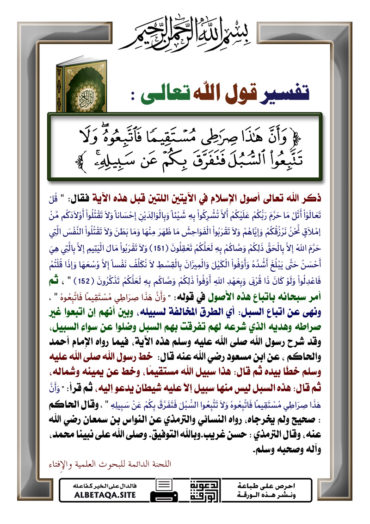 بسم الله الرحمن الرحيم
تفسير قول الله تعالى :
﴿ وَأَنَّ هَٰذَا صِرَٰطِى مُسْتَقِيمًا فَٱتَّبِعُوهُ ۖ وَلَا
تَتَّبِعُوا۟ ٱلسُّبُلَ فَتَفَرَّقَ بِكُمْ عَن سَبِيلِهِۦ ۚ ﴾
ذكر الله تعالى أصول الإسلام في الآيتين اللتين قبل هذه الآية فقال: " قُلْ
تَعَالَوْاْ أَتْلُ مَا حَرَّمَ رَبُّكُمْ عَلَيْكُمْ أَلاَّ تُشْرِكُواْ بِهِ شَيْئاً وَبِالْوَالِدَيْنِ إِحْسَاناً وَلاَ تَقْتُلُواْ أَوْلاَدَكُم مِّنْ
إِمْلاَقٍ نَّحْنُ نَرْزُقُكُمْ وَإِيَّاهُمْ وَلاَ تَقْرَبُواْ الْفَوَاحِشَ مَا ظَهَرَ مِنْهَا وَمَا بَطَنَ وَلاَ تَقْتُلُواْ النَّفْسَ الَّتِي
حَرَّمَ اللهُ إِلاَّ بِالْحَقِّ ذَلِكُمْ وَصَّاكُمْ بِهِ لَعَلَّكُمْ تَعْقِلُونَ (151) وَلاَ تَقْرَبُواْ مَالَ الْيَتِيمِ إِلاَّ بِالَّتِي هِيَ
أَحْسَنُ حَتَّى يَبْلُغَ أَشُدَّهُ وَأَوْفُواْ الْكَيْلَ وَالْمِيزَانَ بِالْقِسْطِ لاَ نُكَلِّفُ نَفْساً إِلاَّ وُسْعَهَا وَإِذَا قُلْتُمْ
فَاعْدِلُواْ وَلَوْ كَانَ ذَا قُرْبَى وَبِعَهْدِ اللهِ أَوْفُواْ ذَلِكُمْ وَصَّاكُم بِهِ لَعَلَّكُمْ تَذَكَّرُونَ (152) " ، ثم
أمر سبحانه باتباع هذه الأصول في قوله: " وَأَنَّ هَذَا صِرَاطِي مُسْتَقِيمًا فَاتَّبِعُوهُ " ،
ونهى عن اتباع السبل: أي الطرق المخالفة لسبيله، وبين أنهم إن اتبعوا غير
صراطه وهديه الذي شرعه لهم تفرقت بهم السبل وضلوا عن سواء السبيل،
وقد شرح رسول الله صلى الله عليه وسلم هذه الآية، فيما رواه الإمام أحمد
والحاكم ، عن ابن مسعود رضي الله عنه قال: خط رسول الله صلى الله عليه
وسلم خطا بيده ثم قال: هذا سبيل الله مستقيمًا، وخط عن يمينه وشماله،
ثم قال: هذه السبل ليس منها سبيل إلا عليه شيطان يدعو إليه، ثم قرأ: " وَأَنَّ
هَذَا صِرَاطِي مُسْتَقِيمًا فَاتَّبِعُوهُ وَلاَ تَتَّبِعُواْ السُّبُلَ فَتَفَرَّقَ بِكُمْ عَن سَبِيلِهِ " ، وقال الحاكم
: صحيح ولم يخرجاه، رواه النسائي والترمذي عن النواس بن سمعان رضي الله
عنه، وقال الترمذي : حسن غريب.وبالله التوفيق، وصلى الله على نبينا محمد،
وآله وصحبه وسلم.
اللجنة الدائمة للبحوث العلمية والإفتاء
احرص على طباعة
ونشر هذه الورقة
الدعوية
الورقة
فالدال على الخير كفاعله
ALBETAQA.SITE